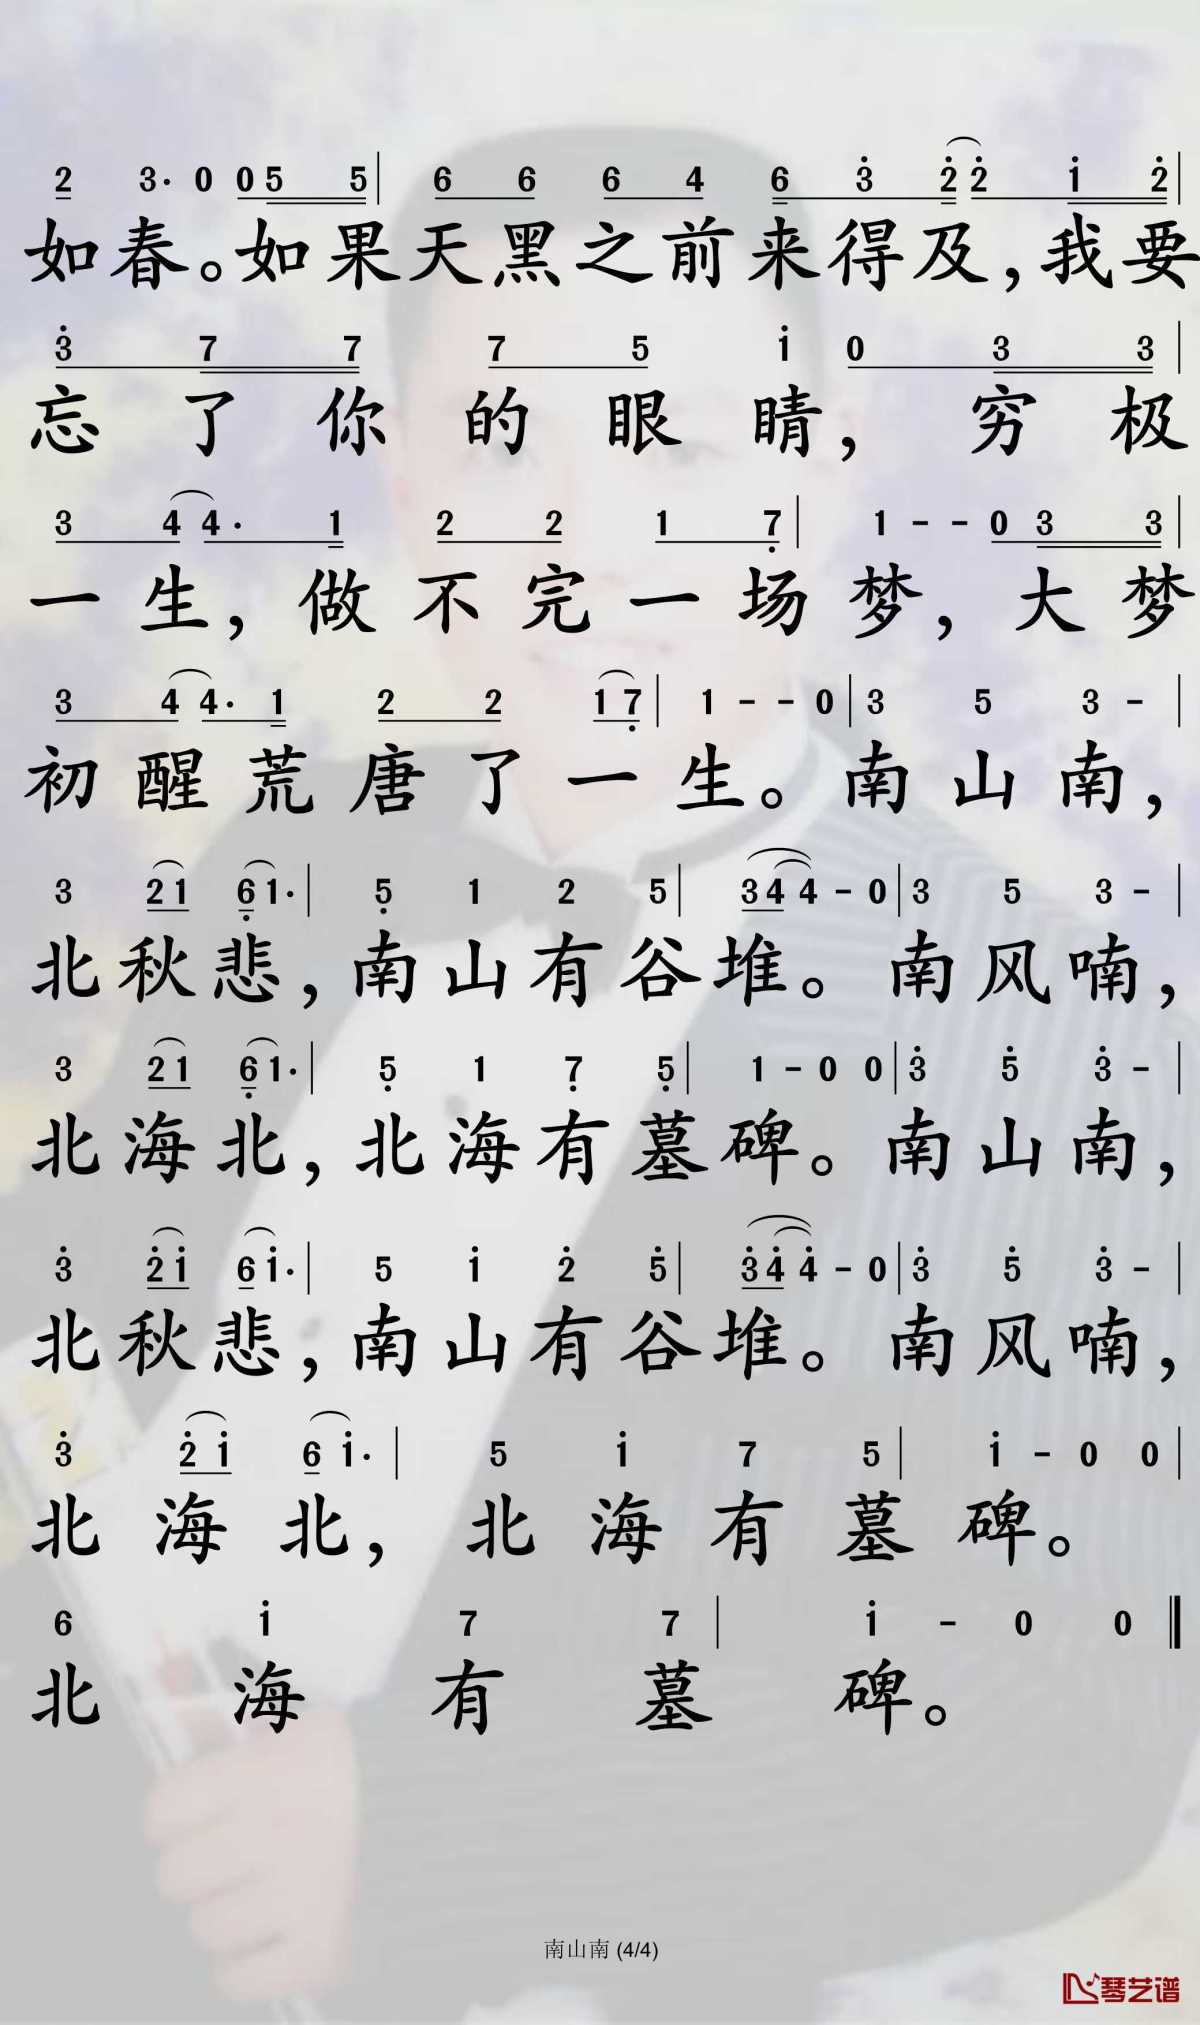 2 3· 0 0 5 5 | 6 6 6 4 6 3 2 2 1 2 |
如春。如果天黑之前来得及，我要
3 7 7 7 5 1 0 3 3 |
忘了你的眼睛，穷极
3 4 4· 1 2 2 1 7 | 1 - - 0 3 3 |
一生，做不完一场梦，大梦
3 4 4· 1 2 2 1 7 | 1 - - 0 | 3 5 3 - |
初醒荒唐了一生。南山南，
3 2 1 6 1· | 5 1 2 5 | 3 4 4 - 0 | 3 5 3 - |
北秋悲，南山有谷堆。南风喃，
3 2 1 6 1· | 5 1 7 5 | 1 - 0 0 | 3 5 3 - |
北海北，北海有墓碑。南山南，
3 2 1 6 1· | 5 1 2 5 | 3 4 4 - 0 | 3 5 3 - |
北秋悲，南山有谷堆。南风喃，
3 2 1 6 1· | 5 1 7 5 | 1 - 0 0 |
北海北，北海有墓碑。
6 1 7 7 | 1 - 0 0
北海有墓碑。
南山南 (4/4)
琴艺谱